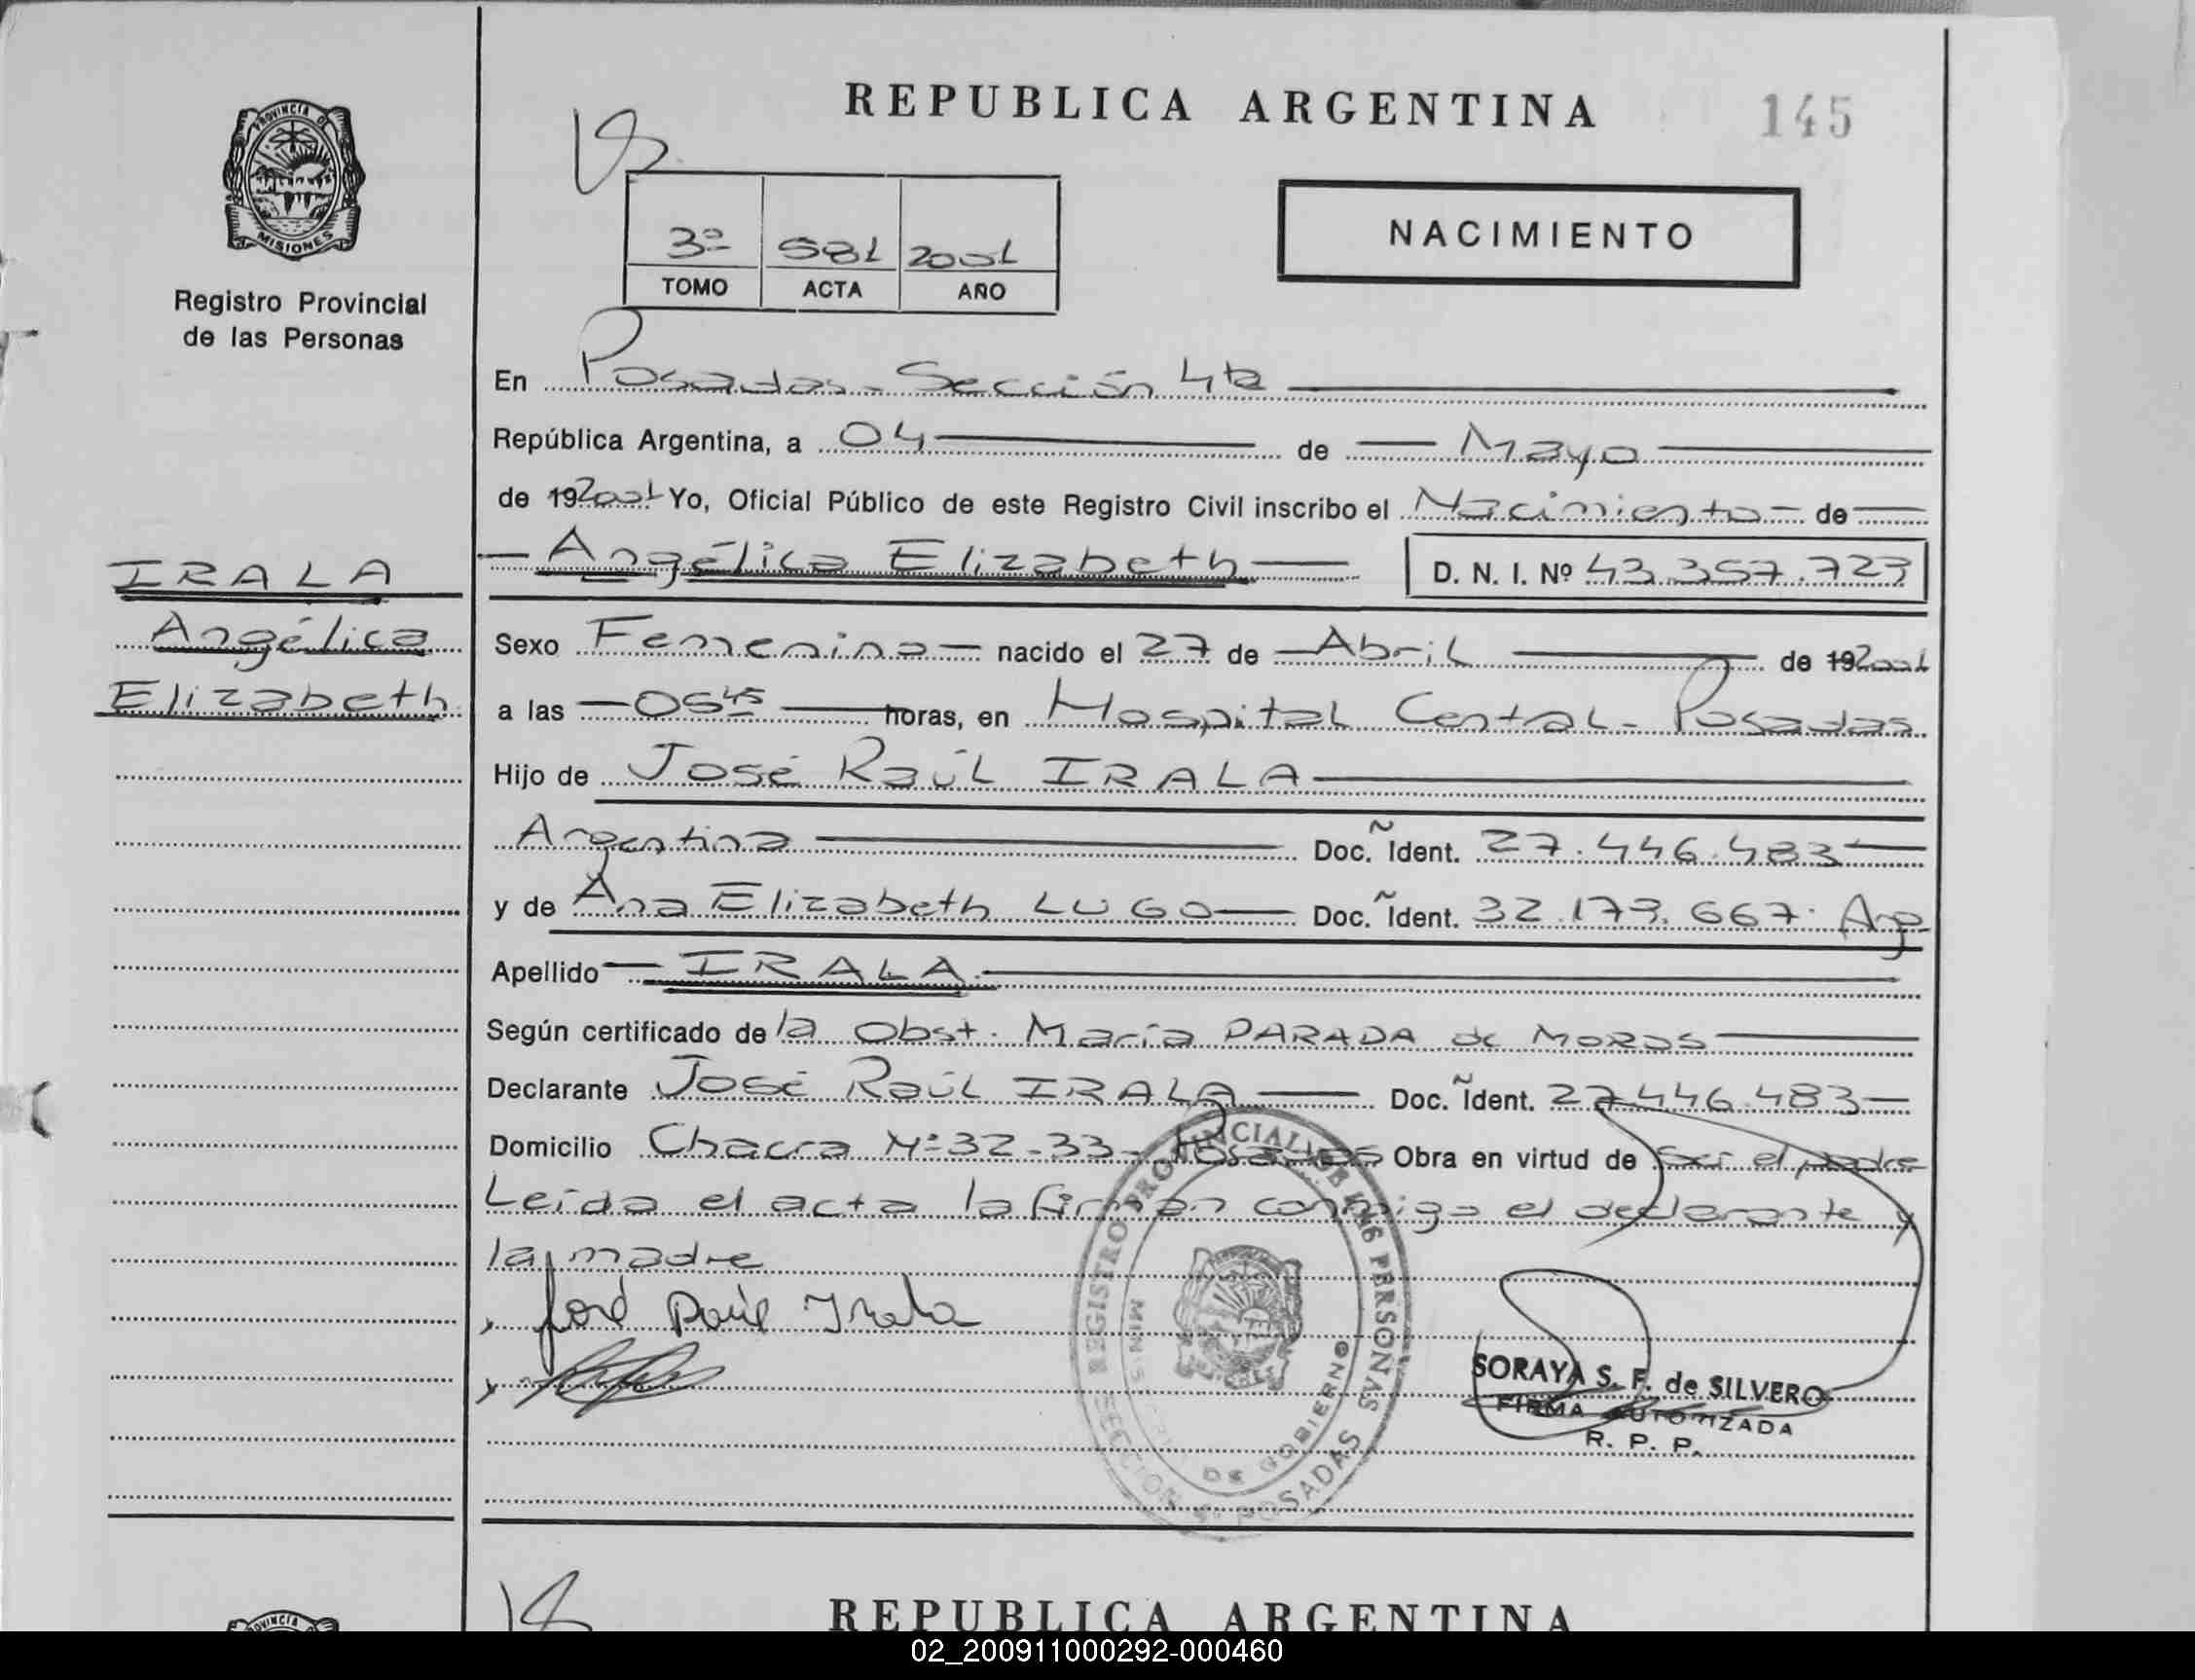 REPUBLICA ARGENTINA
145
PROVINCIA DE
MISIONES
Registro Provincial
de las Personas
3º 581 2001
TOMO ACTA AÑO
NACIMIENTO
En Posadas - Sección 4ta
República Argentina, a 04 de Mayo
de 192001 Yo, Oficial Público de este Registro Civil inscribo el Nacimiento de
Angélica Elizabeth D. N. I. Nº 43.357.723
IRALA
Angélica
Elizabeth
Sexo Femenino nacido el 27 de Abril de 192001
a las 05 45 horas, en Hospital Central - Posadas
Hijo de José Raúl IRALA
Argentina Doc. Ident. 27.446.483
y de Ana Elizabeth LUGO Doc. Ident. 32.179.667. Arg
Apellido IRALA
Según certificado de la Obst. María PARADA de MORAS
Declarante José Raúl IRALA Doc. Ident. 27.446.483
Domicilio Chacra Nº 32-33 - Posadas Obra en virtud de ser el padre
Leída el acta la firman conmigo el declarante y
la madre
José Raúl Irala
REGISTRO PROVINCIAL DE LAS PERSONAS
DE GOBIERNO
SECCION POSADAS
SORAYA S. F. de SILVERO
FIRMA AUTORIZADA
R. P. P.
REPUBLICA ARGENTINA
02_200911000292-000460